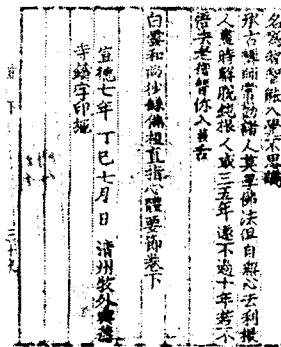 名爲智智能入衆不思議
承古禪師常勸諸人莫學佛法但自無心去利根
人晝時解脫鈍根人或三五年遠不過十年若不
悟去老僧替你入拔舌
白雲和尙抄錄佛祖直指心體要節卷下
宣光七年丁巳七月 日 清州牧外興德
寺鑄字印施
下 三十九